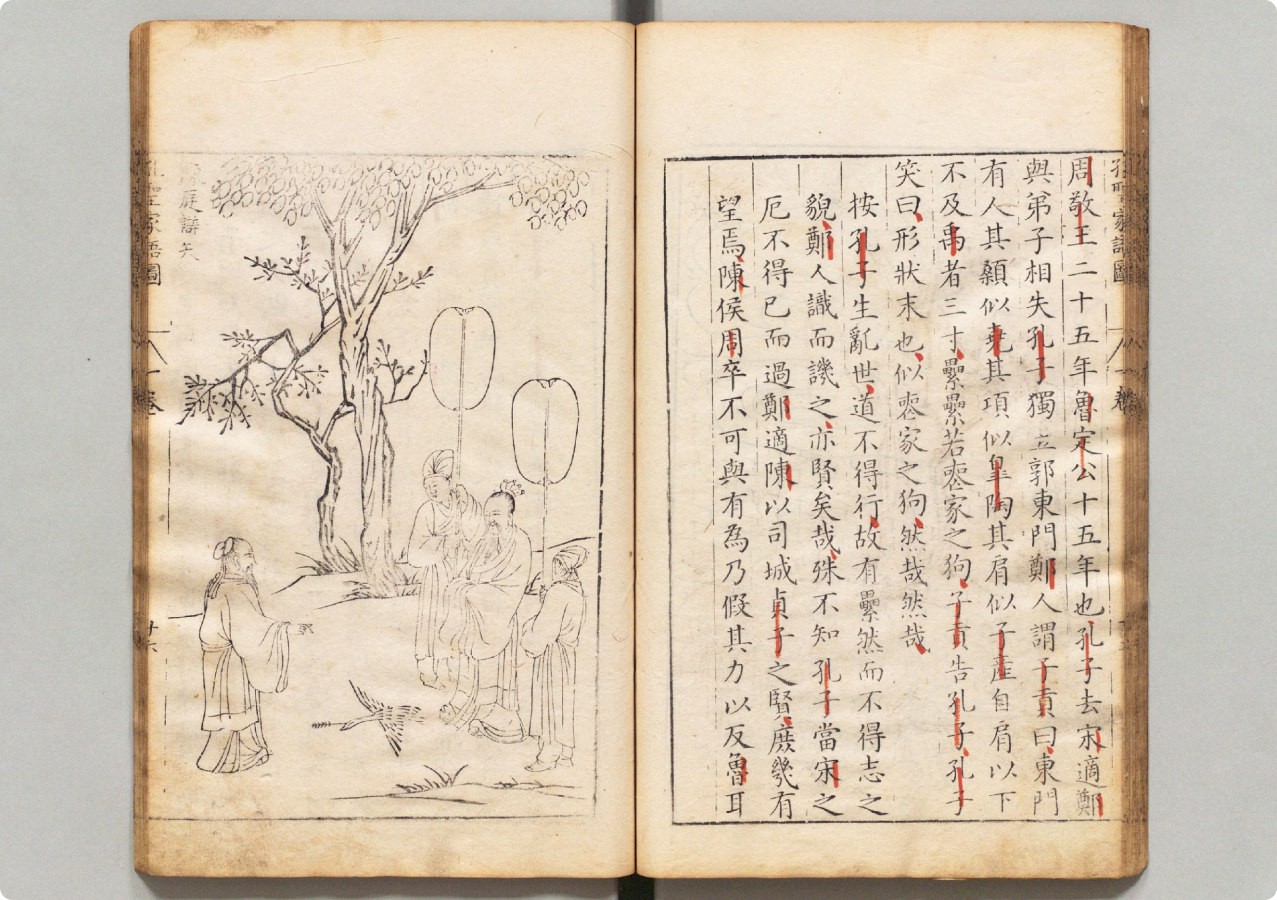 孔聖家語圖
卷
周敬王二十五年魯定公十五年也孔子去宋適鄭
與弟子相失孔子獨立郭東門鄭人謂子貢曰東門
有人其顙似堯其項似臯陶其肩似子產自肩以下
不及禹者三寸纍纍若喪家之狗子貢告孔子孔子
笑曰形狀末也似喪家之狗然哉然哉
按孔子生亂世道不得行故有纍然而不得志之
貌鄭人識而譏之亦賢矣哉殊不知孔子當宋之
厄不得已而過鄭適陳以司城貞子之賢庶幾有
望焉陳侯周卒不可與有為乃假其力以反魯耳
庭辯矢
孔聖家語圖
卷一
廿六